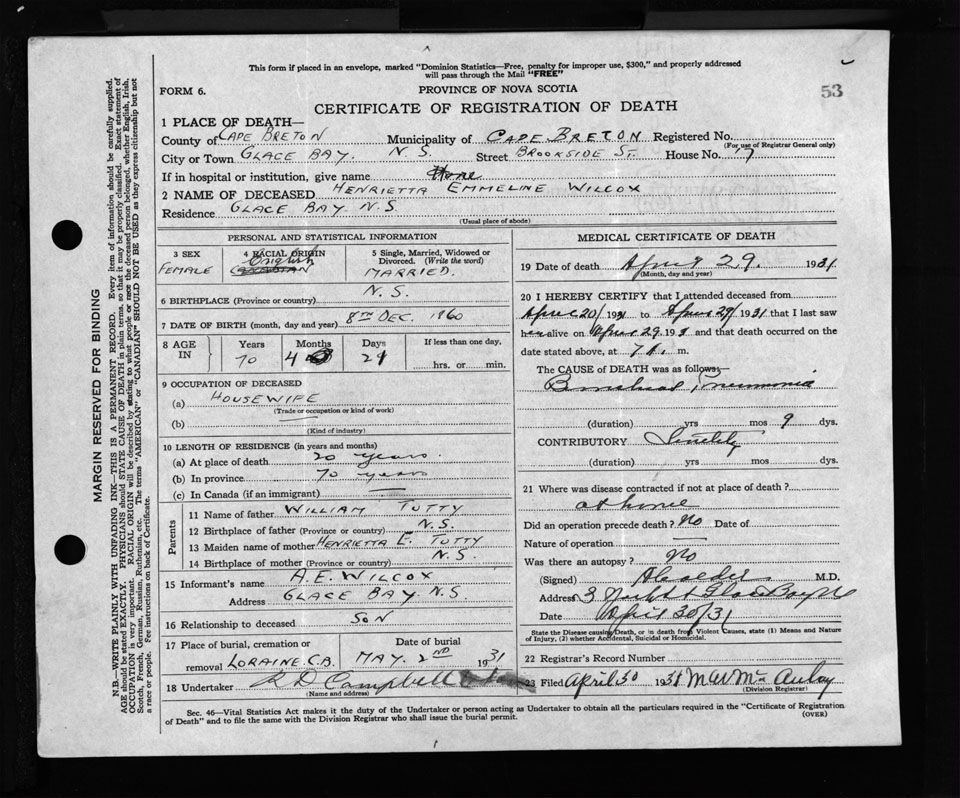 This form if placed in an envelope, marked "Dominion Statistics—Free, penalty for improper use, $300," and properly addressed
will pass through the Mail "FREE"
FORM 6.
PROVINCE OF NOVA SCOTIA
53
CERTIFICATE OF REGISTRATION OF DEATH
1 PLACE OF DEATH—
County of CAPE BRETON Municipality of CAPE BRETON Registered No.
(For use of Registrar General only)
City or Town GLACE BAY. N.S. Street BROOKSIDE ST. House No. 17
If in hospital or institution, give name Home
2 NAME OF DECEASED HENRIETTA EMMELINE WILCOX
Residence GLACE BAY N.S.
(Usual place of abode)
PERSONAL AND STATISTICAL INFORMATION
3 SEX
FEMALE
4 RACIAL ORIGIN
English
CANADIAN
5 Single, Married, Widowed or
Divorced. (Write the word)
MARRIED.
6 BIRTHPLACE (Province or country) N.S.
7 DATE OF BIRTH (month, day and year) 8TH DEC. 1860
8 AGE IN
Years 70
Months 4
Days 21
If less than one day,
hrs. or min.
9 OCCUPATION OF DECEASED
(a) HOUSEWIFE
(Trade or occupation or kind of work)
(b)
(Kind of industry)
10 LENGTH OF RESIDENCE (in years and months)
(a) At place of death 20 years.
(b) In province 70 years
(c) In Canada (if an immigrant) —
Parents
11 Name of father WILLIAM TUTTY
12 Birthplace of father (Province or country) N.S.
13 Maiden name of mother HENRIETTA E. TUTTY
14 Birthplace of mother (Province or country) N.S.
15 Informant's name A.E. WILCOX
Address GLACE BAY N.S
16 Relationship to deceased SON
17 Place of burial, cremation or
removal LORAINE C.B.
Date of burial
MAY. 2ND 1931
18 Undertaker R D Campbell
(Name and address)
MEDICAL CERTIFICATE OF DEATH
19 Date of death April 29. 1931
(Month, day and year)
20 I HEREBY CERTIFY that I attended deceased from
April 20/1931 to April 29/1931 that I last saw
alive on April 29, 1931 and that death occurred on
date stated above, at m.
The CAUSE of DEATH was as follows—
Bronchial Pneumonia
(duration) yrs mos 9 dys.
CONTRIBUTORY Senility
(duration) yrs mos dys.
21 Where was disease contracted if not at place of death?
at home
Did an operation precede death? No Date of
Nature of operation —
Was there an autopsy? No
(Signed) M.D.
Address
Date April 30/31
State the Disease causing Death, or in death from Violent Causes, state (1) Means and Nature
of Injury, (2) whether Accidental, Suicidal or Homicidal.
22 Registrar's Record Number
23 Filed April 30 1931 M W McAulay
(Division Registrar)
Sec. 46—Vital Statistics Act makes it the duty of the Undertaker or person acting as Undertaker to obtain all the particulars required in the "Certificate of Registration
of Death" and to file the same with the Division Registrar who shall issue the burial permit.
(OVER)
MARGIN RESERVED FOR BINDING
N.B.—WRITE PLAINLY WITH UNFADING INK—THIS IS A PERMANENT RECORD. Every item of information should be carefully supplied.
AGE should be stated EXACTLY. PHYSICIANS should STATE CAUSE OF DEATH in plain terms, so that it may be properly classified. Exact statement of
OCCUPATION is very important. RACIAL ORIGIN will be described by stating to what people or race the deceased person belonged, whether English, Irish,
Scotch, French, German, Russian, Ruthenian, etc. The terms "AMERICAN" or "CANADIAN" SHOULD NOT BE USED as they express citizenship but not
a race or people. Fee instructions on back of Certificate.